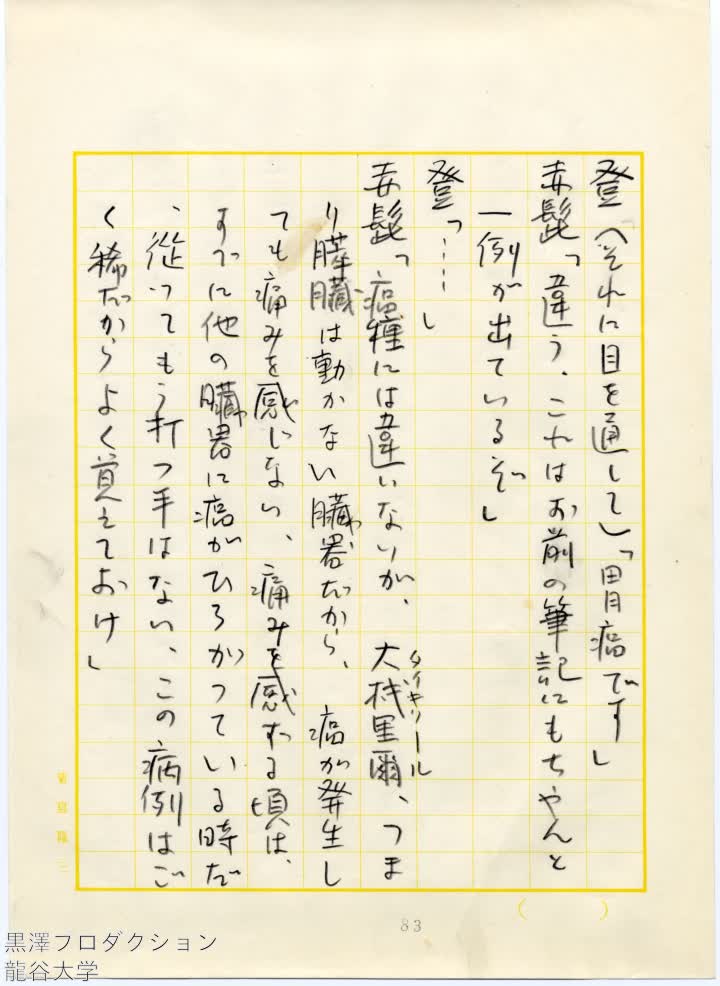 登「(それに目を通して)「胃癌です」
赤髭「違う、これはお前の筆記にもちやんと
一例が出ているぞ」
登「……」
赤髭「癌種には違いないが、大機里爾、つま
タイキリール
り膵臓は動かない臓器だから、癌が発生し
ても痛みを感じない、痛みを感ずる頃は、
すでに他の臓器に癌がひろがつている時だ
、従つてもう打つ手はない、この病例はご
く稀だからよく覚えておけ」
83
黒澤プロダクション
龍谷大学